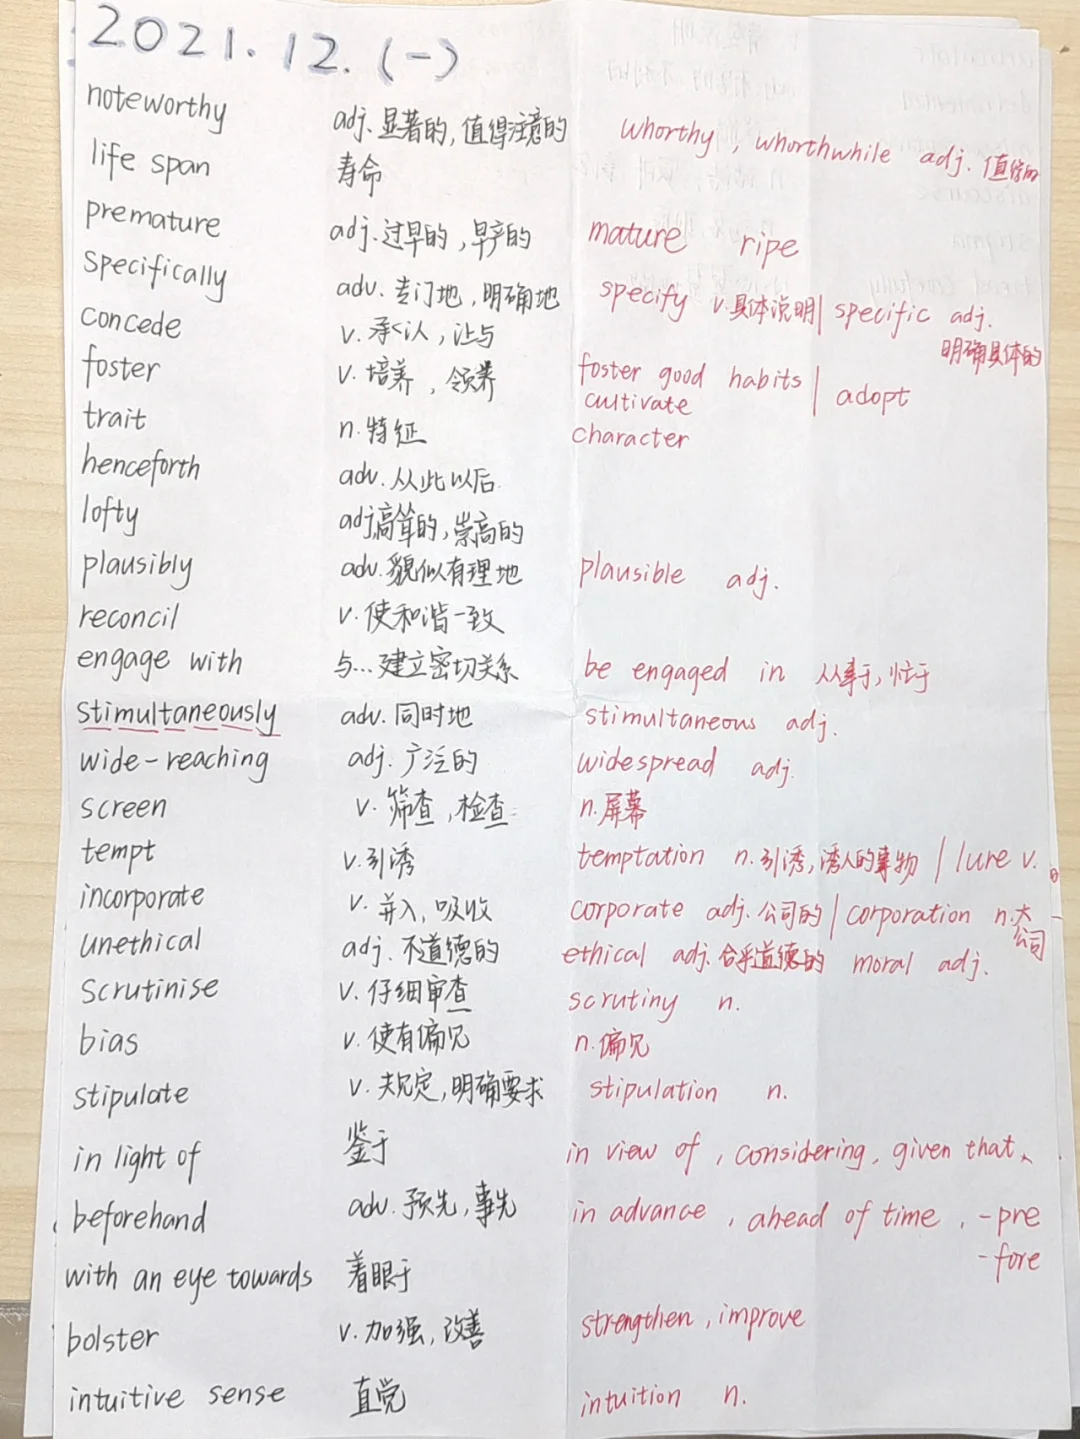 2021.12.(一)
noteworthy adj.显著的,值得注意的 whorthy, whorthwhile adj.值得的
life span 寿命
premature adj.过早的,早产的 mature ripe
specifically adv.专门地,明确地 specify v.具体说明| specific adj.
明确具体的
concede v.承认,让与
foster v.培养,领养 foster good habits | adopt
cultivate
trait n.特征 character
henceforth adv.从此以后
lofty adj高耸的,崇高的
plausibly adv.貌似有理地 plausible adj.
reconcil v.使和谐一致
engage with 与...建立密切关系 be engaged in 从事于,忙于
stimultaneously adv.同时地 stimultaneous adj.
wide-reaching adj.广泛的 widespread adj.
screen v.筛查,检查 n.屏幕
tempt v.引诱 temptation n.引诱,诱人的事物 | lure v.
incorporate v.并入,吸收 corporate adj.公司的 | corporation n.大
公司
unethical adj.不道德的 ethical adj.合乎道德的 moral adj.
scrutinise v.仔细审查 scrutiny n.
bias v.使有偏见 n.偏见
stipulate v.规定,明确要求 stipulation n.
in light of 鉴于 in view of, considering, given that
beforehand adv.预先,事先 in advance, ahead of time, -pre
-fore
with an eye towards 着眼于
bolster v.加强,改善 strengthen, improve
intuitive sense 直觉 intuition n.